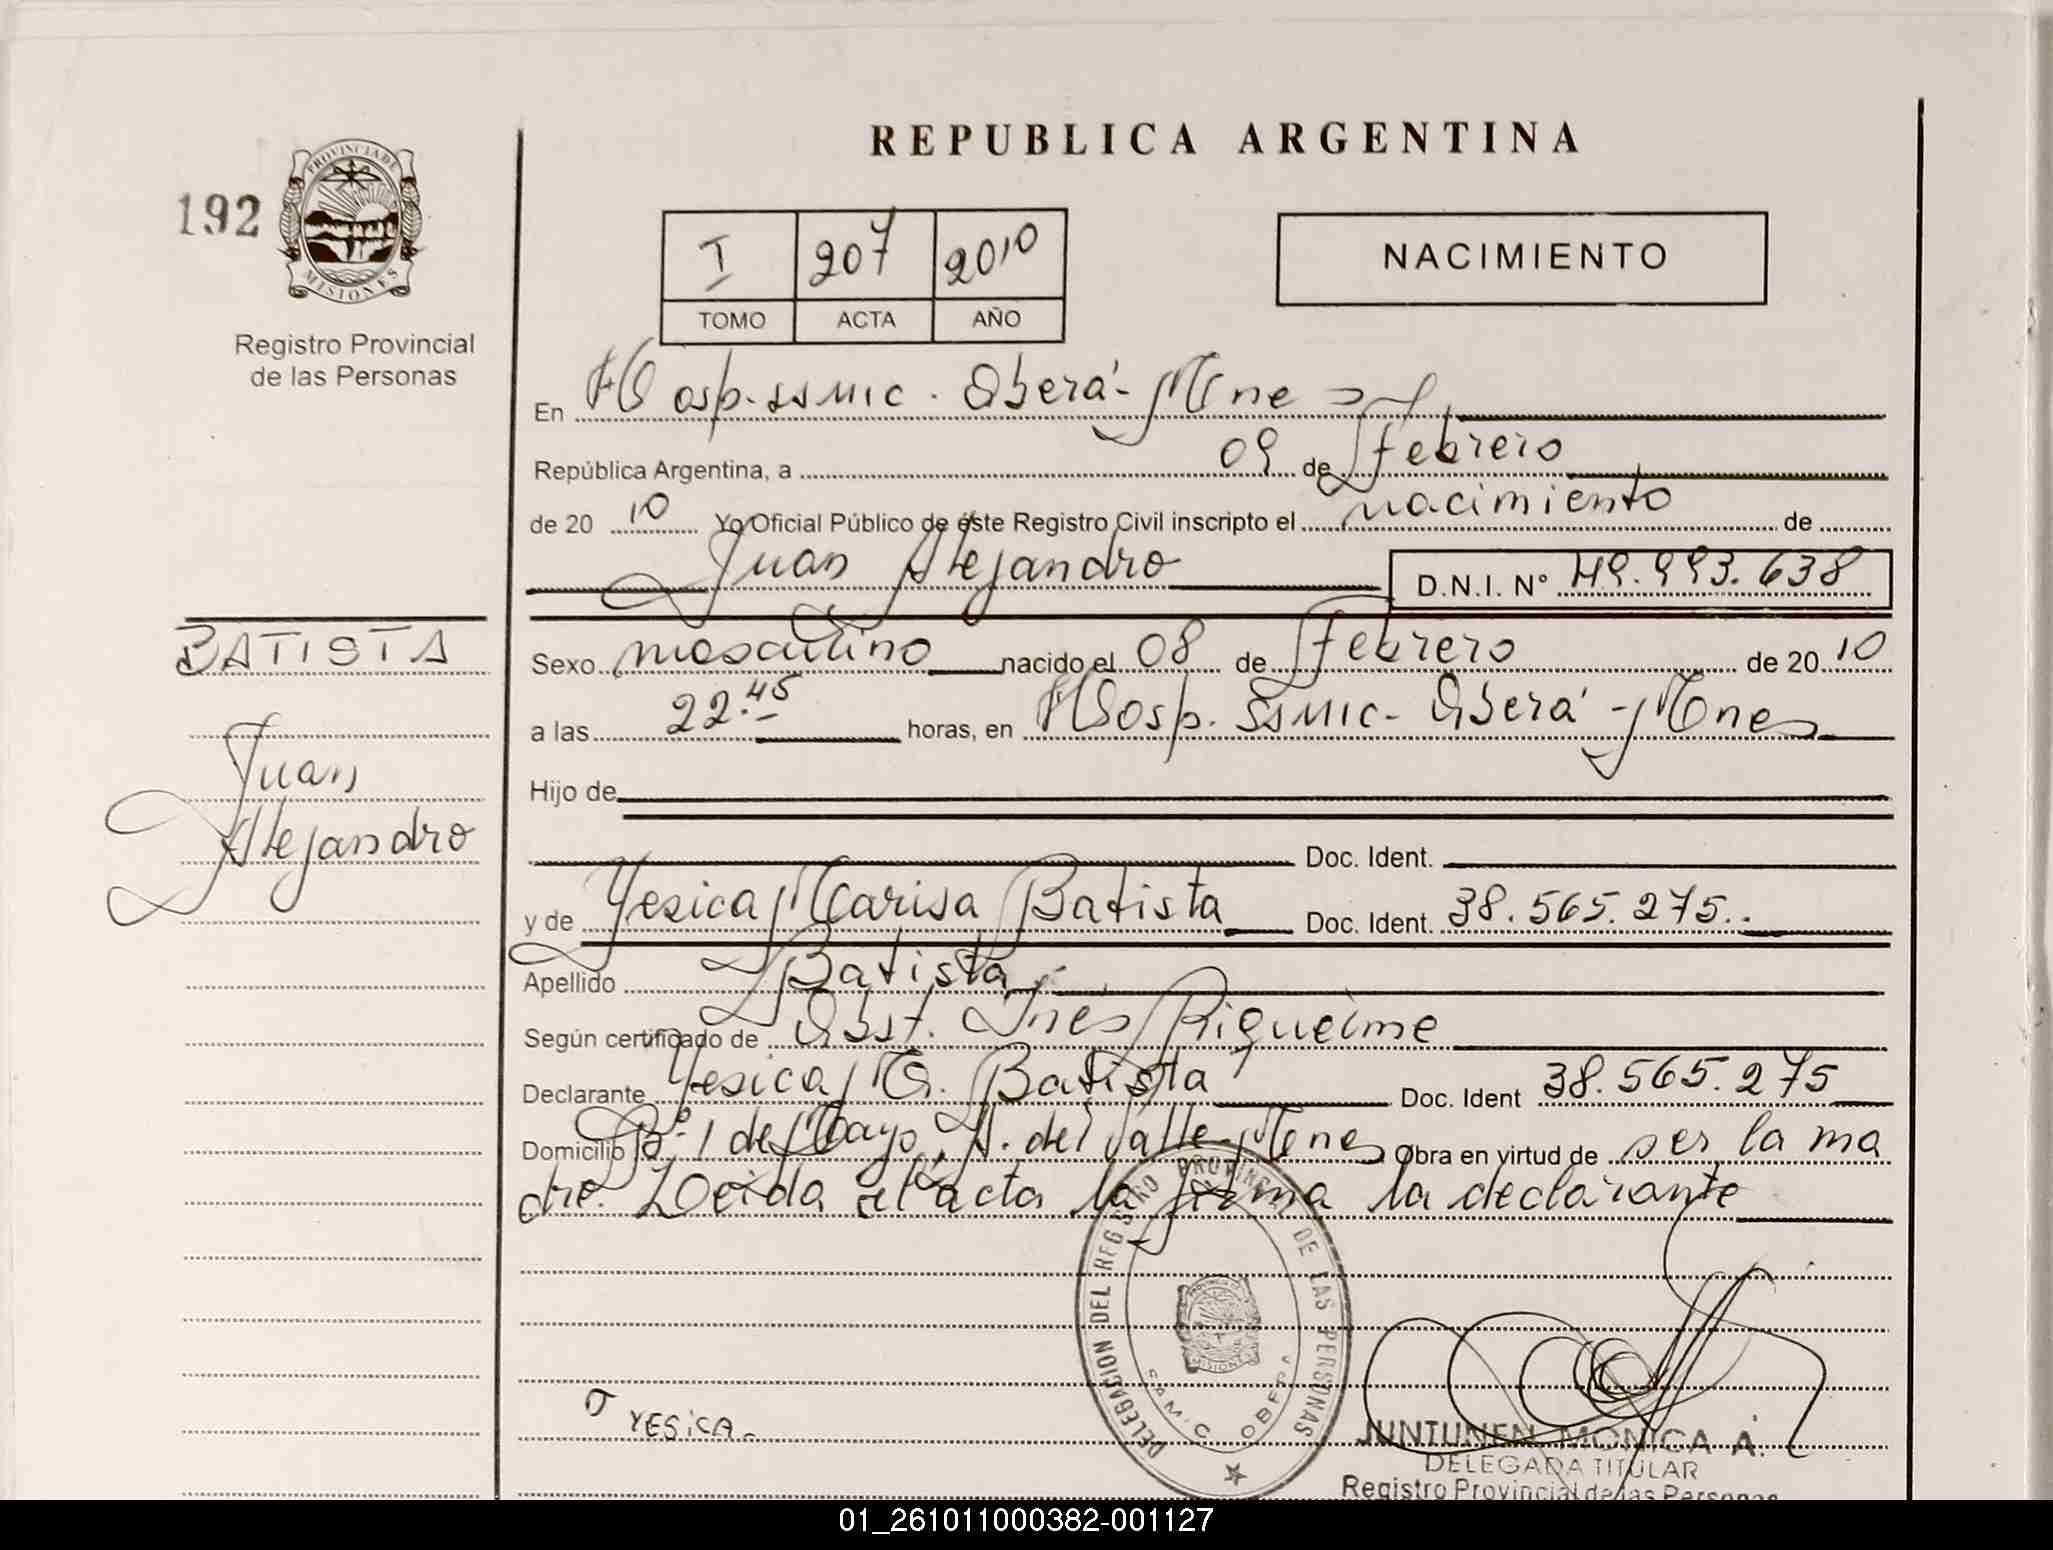 REPUBLICA ARGENTINA
192
PROVINCIA DE
MISIONES
Registro Provincial
de las Personas
I 207 2010
TOMO ACTA AÑO
NACIMIENTO
En Hosp. SSMIC. Oberá - Mnes
República Argentina, a 09 de Febrero
de 20 10 Yo Oficial Público de éste Registro Civil inscripto el nacimiento de
Juan Alejandro D.N.I. Nº 49.993.638
BATISTA
Juan
Alejandro
Sexo masculino nacido el 08 de Febrero de 20 10
a las 22.45 horas, en Hosp. SSMIC - Oberá - Mnes
Hijo de
Doc. Ident.
y de Yesica Marisa Batista Doc. Ident. 38.565.275..
Apellido Batista
Según certificado de Obst. Inés Riquelme
Declarante Yesica M. Batista Doc. Ident 38.565.275
Domicilio Bº 1 de Mayo, A. del Valle - Mnes Obra en virtud de ser la ma
dre. Leida el acta la firma la declarante
DELEGACION DEL REGISTRO PROVINCIAL DE LAS PERSONAS
MISIONES
SAMIC OBERA
YESICA.
JUNTUNEN MONICA A.
DELEGADA TITULAR
Registro Provincial de las Personas
01_261011000382-001127